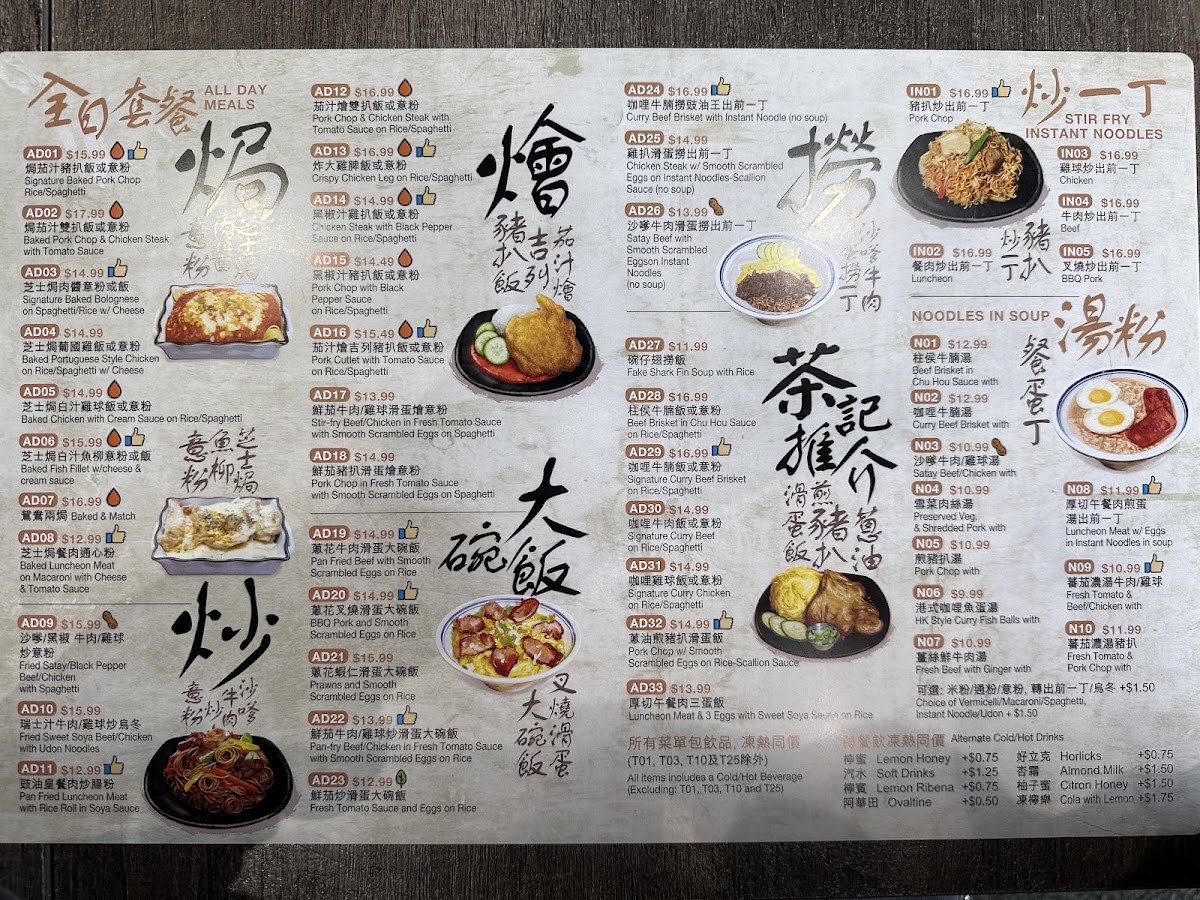 全日套餐
ALL DAY
MEALS
焗
芝士焗
肉醬
意粉
AD01 $15.99
焗茄汁豬扒飯或意粉
Signature Baked Pork Chop
Rice/Spaghetti
AD02 $17.99
焗茄汁雙扒飯或意粉
Baked Pork Chop & Chicken Steak
with Tomato Sauce
AD03 $14.99
芝士焗肉醬意粉或飯
Signature Baked Bolognese
on Spaghetti/Rice w/ Cheese
AD04 $14.99
芝士焗葡國雞飯或意粉
Baked Portuguese Style Chicken
on Rice/Spaghetti w/ Cheese
AD05 $14.99
芝士焗白汁雞球飯或意粉
Baked Chicken with Cream Sauce on Rice/Spaghetti
AD06 $15.99
芝士焗白汁魚柳意粉或飯
Baked Fish Fillet w/cheese &
cream sauce
AD07 $16.99
鴛鴦兩焗 Baked & Match
AD08 $12.99
芝士焗餐肉通心粉
Baked Luncheon Meat
on Macaroni with Cheese
& Tomato Sauce
芝士焗
魚柳
意粉
炒
沙嗲
牛肉
炒
意粉
AD09 $15.99
沙嗲/黑椒 牛肉/雞球
炒意粉
Fried Satay/Black Pepper
Beef/Chicken
with Spaghetti
AD10 $15.99
瑞士汁牛肉/雞球炒烏冬
Fried Sweet Soya Beef/Chicken
with Udon Noodles
AD11 $12.99
豉油皇餐肉炒腸粉
Pan Fried Luncheon Meat
with Rice Roll in Soya Sauce
AD12 $16.99
茄汁燴雙扒飯或意粉
Pork Chop & Chicken Steak with
Tomato Sauce on Rice/Spaghetti
AD13 $16.99
炸大雞脾飯或意粉
Crispy Chicken Leg on Rice/Spaghetti
AD14 $14.99
黑椒汁雞扒飯或意粉
Chicken Steak with Black Pepper
Sauce on Rice/Spaghetti
AD15 $14.49
黑椒汁豬扒飯或意粉
Pork Chop with Black
Pepper Sauce
on Rice/Spaghetti
AD16 $15.49
茄汁燴吉列豬扒飯或意粉
Pork Cutlet with Tomato Sauce
on Rice/Spaghetti
AD17 $13.99
鮮茄牛肉/雞球滑蛋燴意粉
Stir-fry Beef/Chicken in Fresh Tomato Sauce
with Smooth Scrambled Eggs on Spaghetti
AD18 $14.99
鮮茄豬扒滑蛋燴意粉
Pork Chop in Fresh Tomato Sauce
with Smooth Scrambled Eggs on Spaghetti
燴
茄汁燴
吉列
豬扒飯
AD19 $14.99
蔥花牛肉滑蛋大碗飯
Pan Fried Beef with Smooth
Scrambled Eggs on Rice
AD20 $14.99
蔥花叉燒滑蛋大碗飯
BBQ Pork and Smooth
Scrambled Eggs on Rice
AD21 $15.99
蔥花蝦仁滑蛋大碗飯
Prawns and Smooth
Scrambled Eggs on Rice
AD22 $13.99
鮮茄牛肉/雞球炒滑蛋大碗飯
Pan-fry Beef/Chicken in Fresh Tomato Sauce
with Smooth Scrambled Eggs on Rice
AD23 $12.99
鮮茄炒滑蛋大碗飯
Fresh Tomato Sauce and Eggs on Rice
大碗飯
叉燒滑蛋
大碗飯
AD24 $16.99
咖哩牛腩撈豉油王出前一丁
Curry Beef Brisket with Instant Noodle (no soup)
AD25 $14.99
雞扒滑蛋撈出前一丁
Chicken Steak w/ Smooth Scrambled
Eggs on Instant Noodles-Scallion
Sauce (no soup)
AD26 $13.99
沙嗲牛肉滑蛋撈出前一丁
Satay Beef with
Smooth Scrambled
Eggson Instant
Noodles
(no soup)
撈
沙嗲牛肉
撈丁
AD27 $11.99
碗仔翅撈飯
Fake Shark Fin Soup with Rice
AD28 $16.99
柱侯牛腩飯或意粉
Beef Brisket in Chu Hou Sauce
on Rice/Spaghetti
AD29 $16.99
咖哩牛腩飯或意粉
Signature Curry Beef Brisket
on Rice/Spaghetti
AD30 $14.99
咖哩牛肉飯或意粉
Signature Curry Beef
on Rice/Spaghetti
AD31 $14.99
咖哩雞球飯或意粉
Signature Curry Chicken
on Rice/Spaghetti
AD32 $14.99
蔥油煎豬扒滑蛋飯
Pork Chop w/ Smooth
Scrambled Eggs on Rice-Scallion Sauce
AD33 $13.99
厚切午餐肉三蛋飯
Luncheon Meat & 3 Eggs with Sweet Soya Sauce on Rice
茶記推介
蔥油
煎豬扒
滑蛋飯
所有菜單包飲品, 凍熱同價
(T01, T03, T10及T25除外)
All items includes a Cold/Hot Beverage
(Excluding: T01, T03, T10 and T25)
炒一丁
STIR FRY
INSTANT NOODLES
IN01 $16.99
豬扒炒出前一丁
Pork Chop
IN02 $16.99
餐肉炒出前一丁
Luncheon
IN03 $16.99
雞球炒出前一丁
Chicken
IN04 $16.99
牛肉炒出前一丁
Beef
IN05 $16.99
叉燒炒出前一丁
BBQ Pork
豬扒
炒丁
NOODLES IN SOUP
湯粉
餐蛋丁
N01 $12.99
柱侯牛腩湯
Beef Brisket in
Chu Hou Sauce with
N02 $12.99
咖哩牛腩湯
Curry Beef Brisket with
N03 $10.99
沙嗲牛肉/雞球湯
Satay Beef/Chicken with
N04 $10.99
雪菜肉絲湯
Preserved Veg.
& Shredded Pork with
N05 $10.99
煎豬扒湯
Pork Chop with
N06 $9.99
港式咖哩魚蛋湯
HK Style Curry Fish Balls with
N07 $10.99
薑絲鮮牛肉湯
Fresh Beef with Ginger with
N08 $11.99
厚切午餐肉煎蛋
湯出前一丁
Luncheon Meat w/ Eggs
in Instant Noodles in soup
N09 $10.99
蕃茄濃湯牛肉/雞球
Fresh Tomato &
Beef/Chicken with
N10 $11.99
蕃茄濃湯豬扒
Fresh Tomato &
Pork Chop with
可選: 米粉/通粉/意粉, 轉出前一丁/烏冬 +$1.50
Choice of Vermicelli/Macaroni/Spaghetti,
Instant Noodle/Udon + $1.50
餐飲凍熱同價 Alternate Cold/Hot Drinks
檸蜜 Lemon Honey +$0.75 好立克 Horlicks +$0.75
汽水 Soft Drinks +$1.25 杏霜 Almond Milk +$1.50
檸賓 Lemon Ribena +$0.75 柚子蜜 Citron Honey +$1.50
阿華田 Ovaltine +$0.50 凍檸樂 Cola with Lemon +$1.75